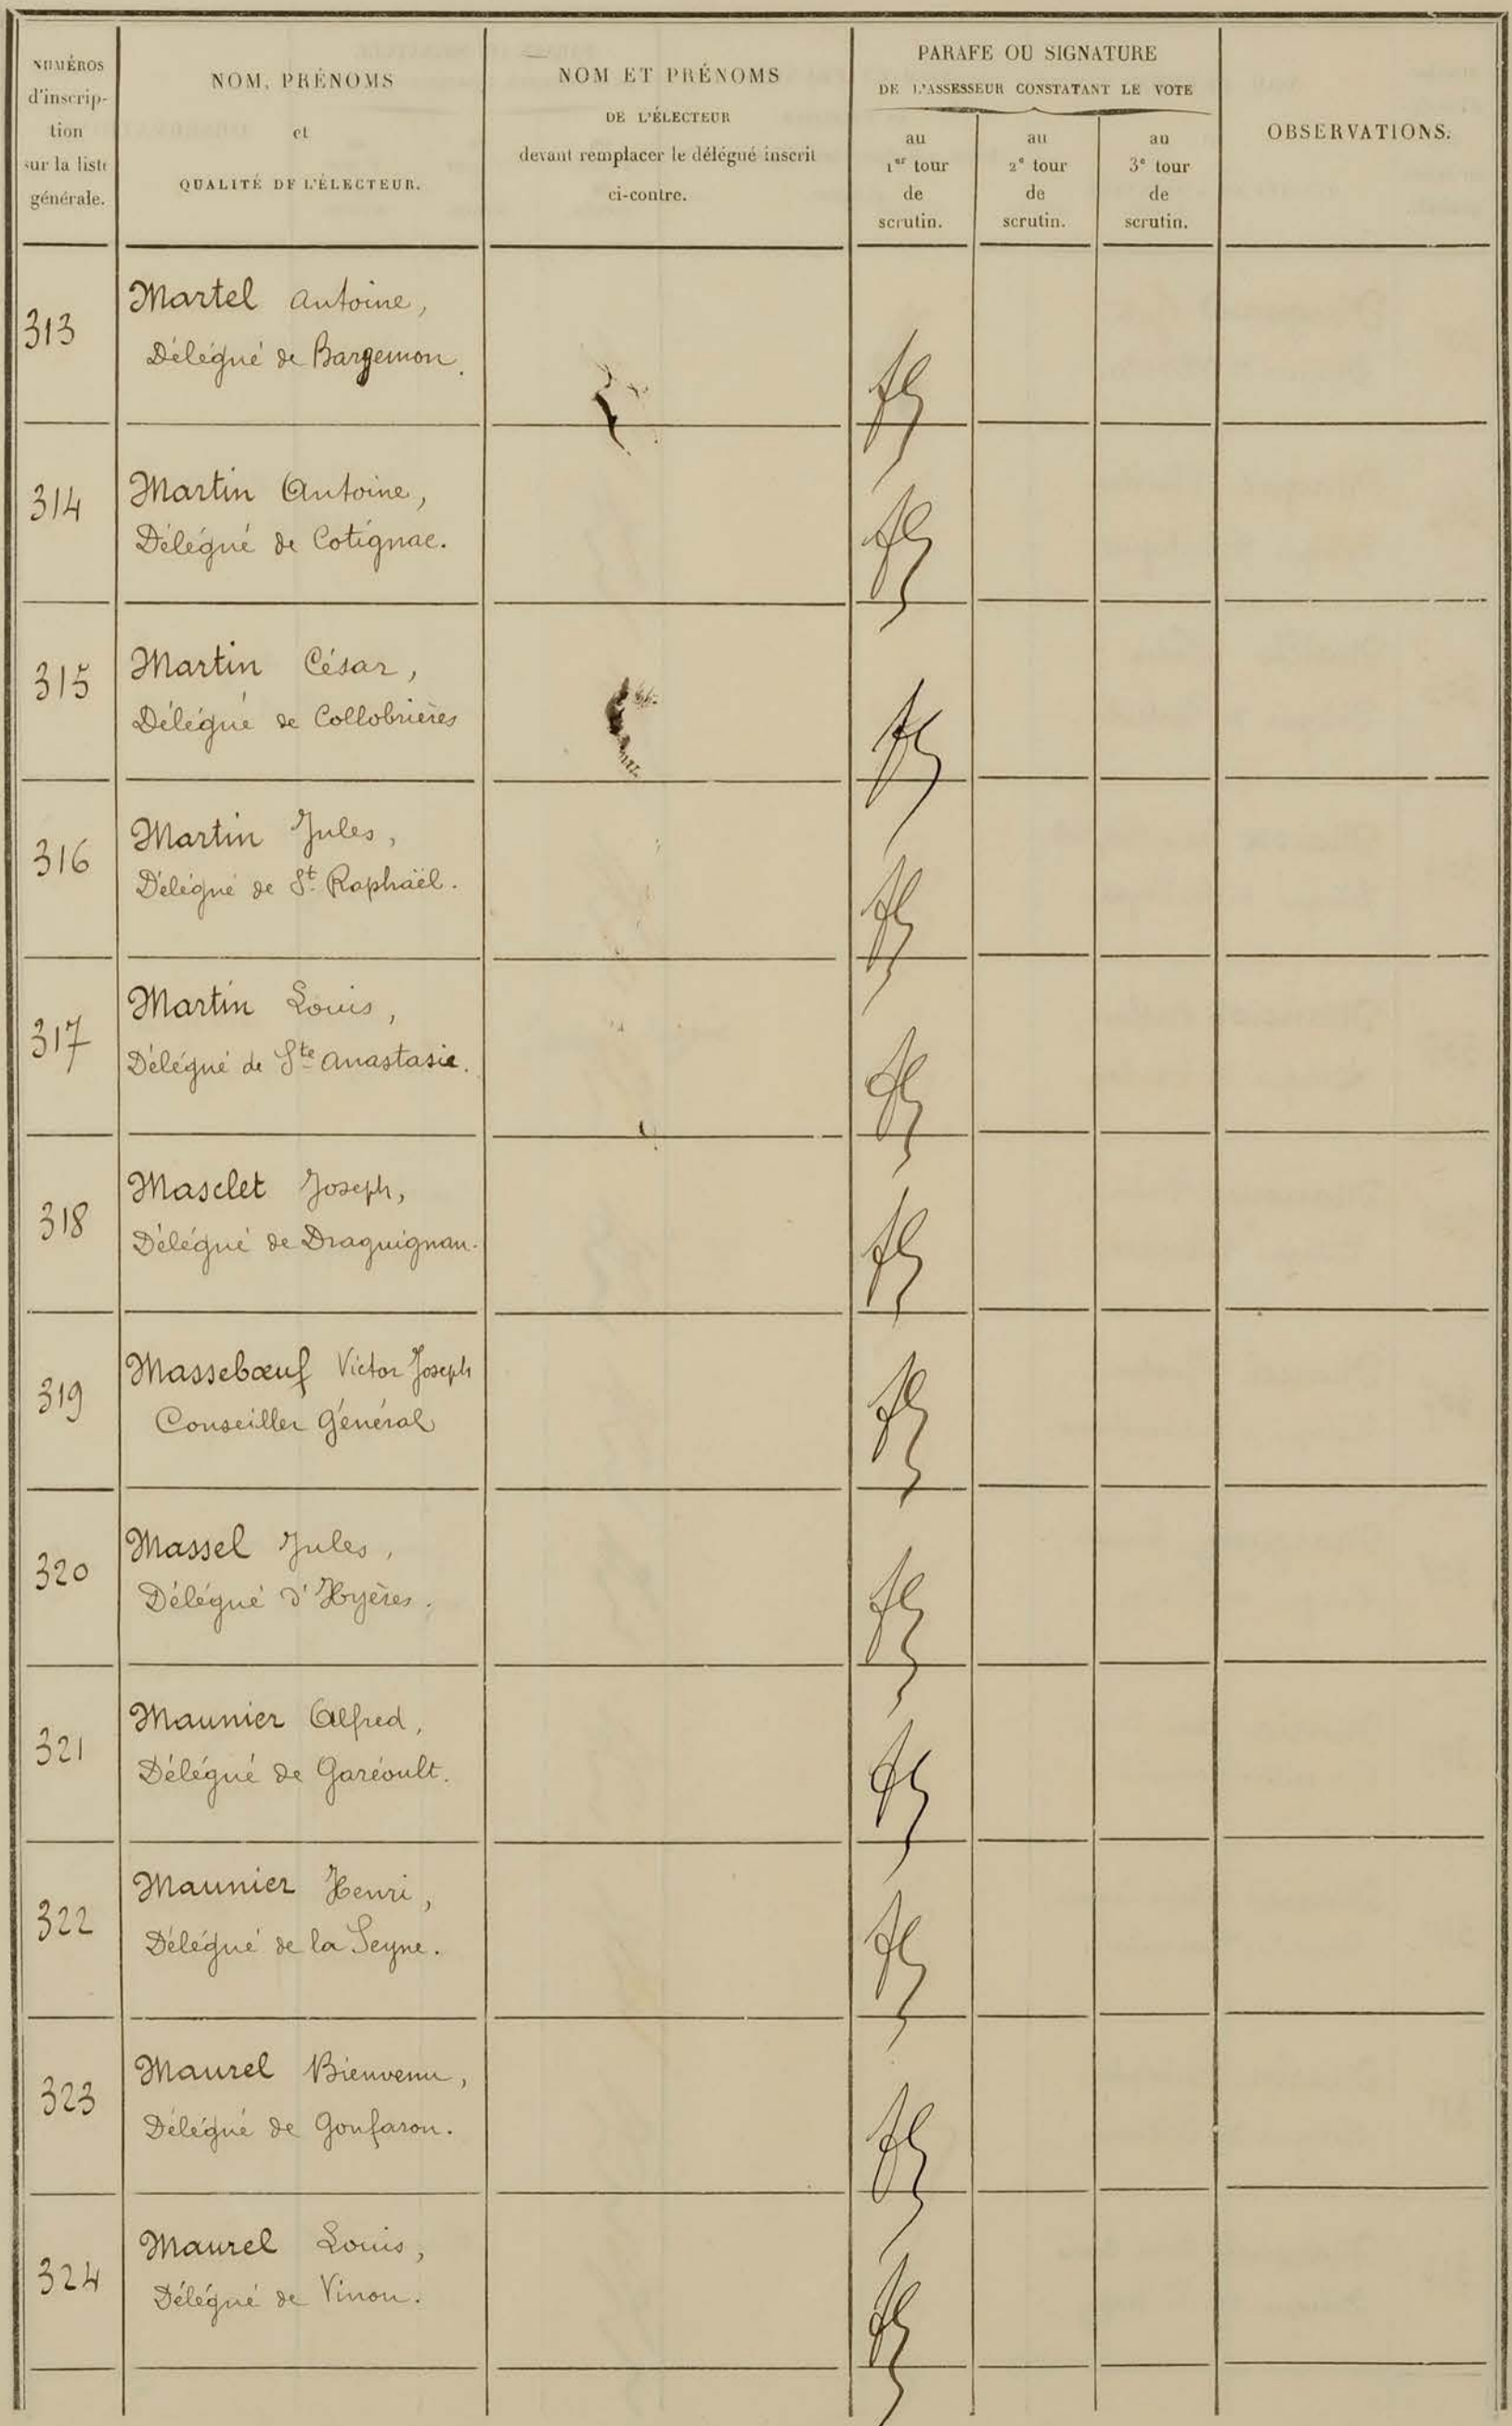 NUMÉROS
d'inscrip-
tion
sur la liste
générale.
NOM, PRÉNOMS
et
QUALITÉ DE L'ÉLECTEUR.
NOM ET PRÉNOMS
DE L'ÉLECTEUR
devant remplacer le délégué inscrit
ci-contre.
PARAFE OU SIGNATURE
DE L'ASSESSEUR CONSTATANT LE VOTE
au
1er tour
de
scrutin.
au
2e tour
de
scrutin.
au
3e tour
de
scrutin.
OBSERVATIONS.
313
Martel Antoine,
Délégué de Bargemon.
314
Martin Antoine,
Délégué de Cotignac.
315
Martin César,
Délégué de Collobrières
316
Martin Jules,
Délégué de St Raphaël.
317
Martin Louis,
Délégué de Ste Anastasie.
318
Masclet Joseph,
Délégué de Draguignan.
319
Massebœuf Victor Joseph
Conseiller Général
320
Massel Jules,
Délégué d'Hyères.
321
Maunier Alfred,
Délégué de Garéoult.
322
Maunier Henri,
Délégué de la Seyne.
323
Maurel Bienvenu,
Délégué de Gonfaron.
324
Maurel Louis,
Délégué de Vinon.